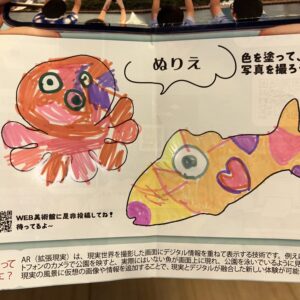 ぬりえ
色を塗って、
写真を撮ろ
WEB美術館に是非投稿してね！
待ってるよ～
って
て？
AR（拡張現実）は、現実世界を撮影した画面にデジタル情報を重ねて表示する技術です。例え
トフォンのカメラで公園を映すと、実際にはいない魚が画面上に現れ、公園を泳いでいるように見
現実の風景に仮想の画像や情報を追加することで、現実とデジタルが融合した新しい体験が可能